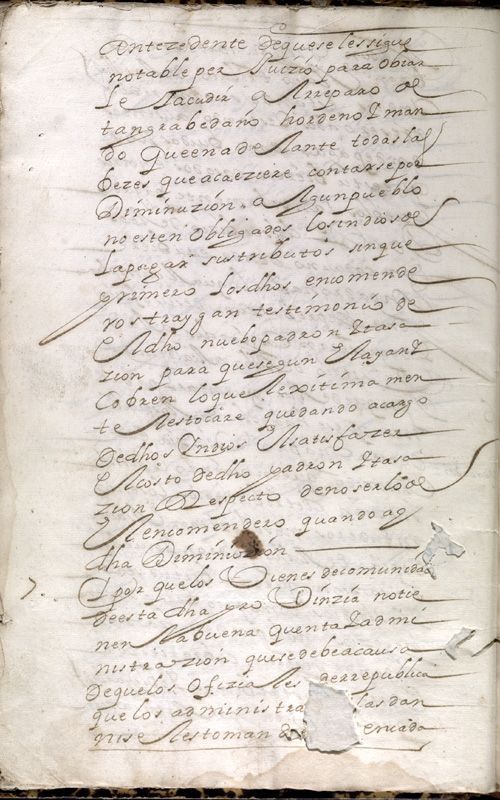 antezedente de que se les sigue
notable per Juizio para obiar
le Yacudir a Arreparo de
tan grabe daño hordeno Y man
do que en adelante todas las
bezes que acaeziere contarse por
Diminuzion a Algun pueblo
no esten obligados los indios de
la pagar sus tributos sin que
primero los dhos encomende
ros traygan testimonio de
el dho nuebo padron Y tasa
zion para que segun ella Y ant
cobren lo que lexitima men
te les tocare quedando a cargo
de dhos Indios el satisfazer
el costo de dho padron Y tasa
zion Respecto de no ser lo de
el encomendero quando ay
dha Diminuzion
Y por que los Vienes de comunidad
de esta dha pro Vinzia no tie
nen la buena quenta Y admi
nistrazion que se debe a causa
de que los ofiziales de rrepublica
que los administra las dan
ni se les toman en cada